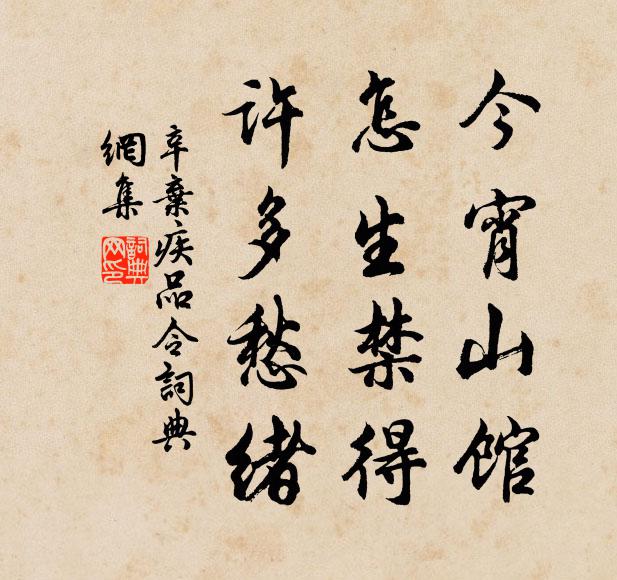 今宵山館
怎生禁得
許多愁緒
辛棄疾品令詞典
網集
詞典網印